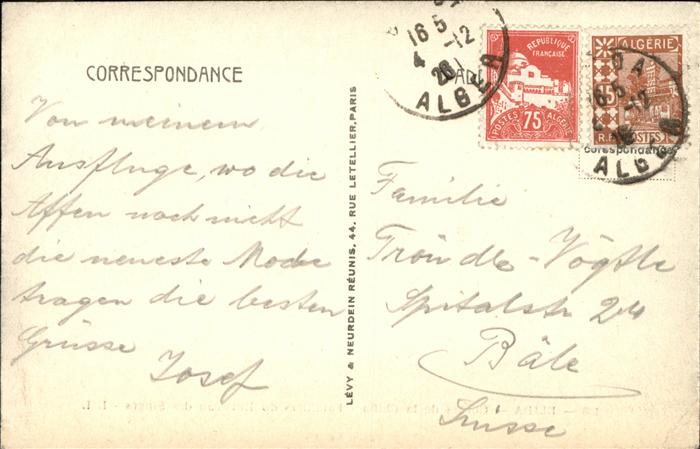 CORRESPONDANCE
Von meinem
Ausfluge, wo die
Affen noch nicht
die neueste Mode
tragen die besten
Grüsse
Josef
LÉVY & NEURDEIN RÉUNIS, 44, RUE LETELLIER, PARIS
16 5
4 -12
26
ALGER
RÉPUBLIQUE
FRANÇAISE
75
POSTES ALGÉRIE
ALGÉRIE
15
R.F. POSTES
16 5
-12
ALGER
correspondance
Familie
Tröndle-Vögtle
Spitalstr 24
Bâle
Suisse